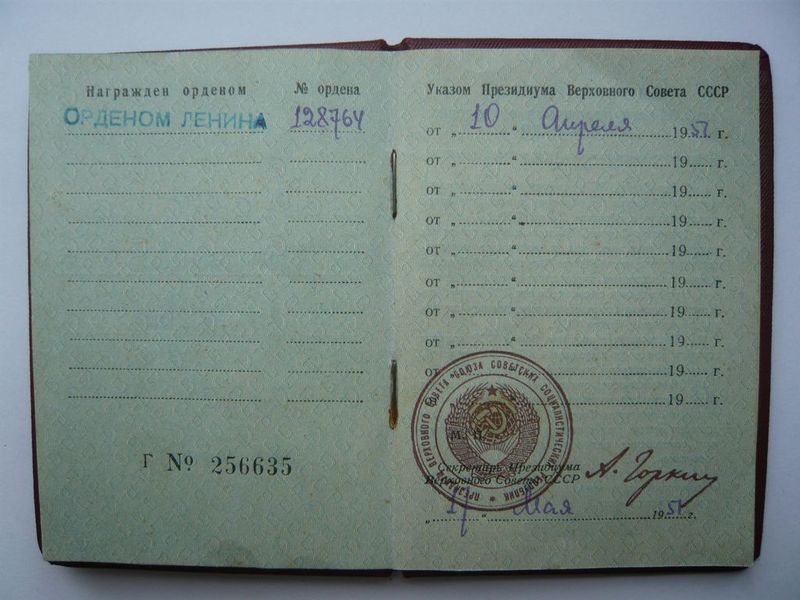 Награжден орденом
№ ордена
ОРДЕНОМ ЛЕНИНА
128764
Г № 256635
Указом Президиума Верховного Совета СССР
от „ 10 “ Апреля 1951 г.
от „ “ 19 г.
от „ “ 19 г.
от „ “ 19 г.
от „ “ 19 г.
от „ “ 19 г.
от „ “ 19 г.
от „ “ 19 г.
от 19 г.
19 г.
М. П.
Секретарь Президиума
Верховного Совета СССР
А. Горкин
„ 17 “ Мая 1951 г.
ПРЕЗИДИУМ ВЕРХОВНОГО СОВЕТА СОЮЗА СОВЕТСКИХ СОЦИАЛИСТИЧЕСКИХ РЕСПУБЛИК